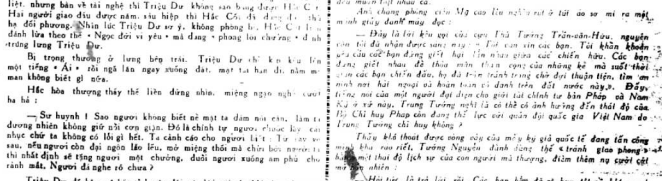 liệt, nhưng bàn về tài nghệ thì Triệu Dư không sao bằng được Hắc C
Hai người giao đấu được năm, sáu hiệp thì Hắc Cô đã
hạ đối phương. Nhìn lúc Triệu Dư sơ ý, không phòng bị, Hắc C
đánh lừa theo thế « Ngọc đới vi yêu » mà đang « phong lôi chưởng » đánh
trúng lưng Triệu Dư.
Bị trọng thương ở lưng bên trái, Triệu Dư chỉ kịp kêu lên
một tiếng « Ái » rồi ngã lăn ngay xuống đất, mặt tái hẳn đi, nằm mê
man không biết gì nữa.
Hắc hòa thượng thấy thế liền đứng nhìn, miệng ngạo nghễ cười
ha hả :
— Sư huynh ! Sao người không biết nể mặt ta dám nói càn, làm ta
đương nhiên không giữ nổi cơn giận. Đó là chính tự người chuốc lấy cái
nhục chứ ta không có lỗi gì hết. Ta cảnh cáo cho người biết : Từ rày về
sau, nếu người còn đại ngôn láo lếu, mở miệng thối mà chửi bới người ta
thì nhất định sẽ tặng người một chưởng, đuổi người xuống âm phủ cho
rảnh mắt. Ngươi đã nghe rõ chưa ?
Triệu Dư
đều muốn tiệt nhau cả.
Anh chàng phóng viên Mg cao lên nghêu rút ở túi áo sơ mi ra một
mình giấy đánh máy đọc :
— Đây là lời kêu gọi của cựu Thủ Tướng Trần-văn-Hữu, nguyên
văn tôi đã nhận được sáng nay : Tôi can xin các bạn. Tôi khẩn khoản
yêu cầu các bạn đừng giết hại lẫn nhau giữa các chiến hữu. Các bạn
đang giết nhau để thỏa mãn tham vọng của những kẻ mà suốt thời
gian các bạn chiến đấu, họ đã trốn tránh trong chờ đợi thuận tiện, tìm an
ninh nơi hải ngoại và hoàn toàn có danh trên đất nước này.». Đấy,
tiếng nói của một người đại diện cho giới tài chính tư bản Pháp và Nam
Kỳ ở xứ này, Trung Tướng nghĩ là có thể có ảnh hưởng đến thái độ của
Bộ Chỉ huy Pháp còn đang thế lực với quân đội quốc gia Việt Nam do
Trung Tướng chỉ huy không ?
Thấy khó thoát được vòng vây của mấy ký giả quốc tế đang tấn công
khá rao riết, Tướng Nguyễn đành dùng thế « tránh giao phong »
một thái độ lịch sự của con người mã thượng, điểm thêm nụ cười cật
nhiên :